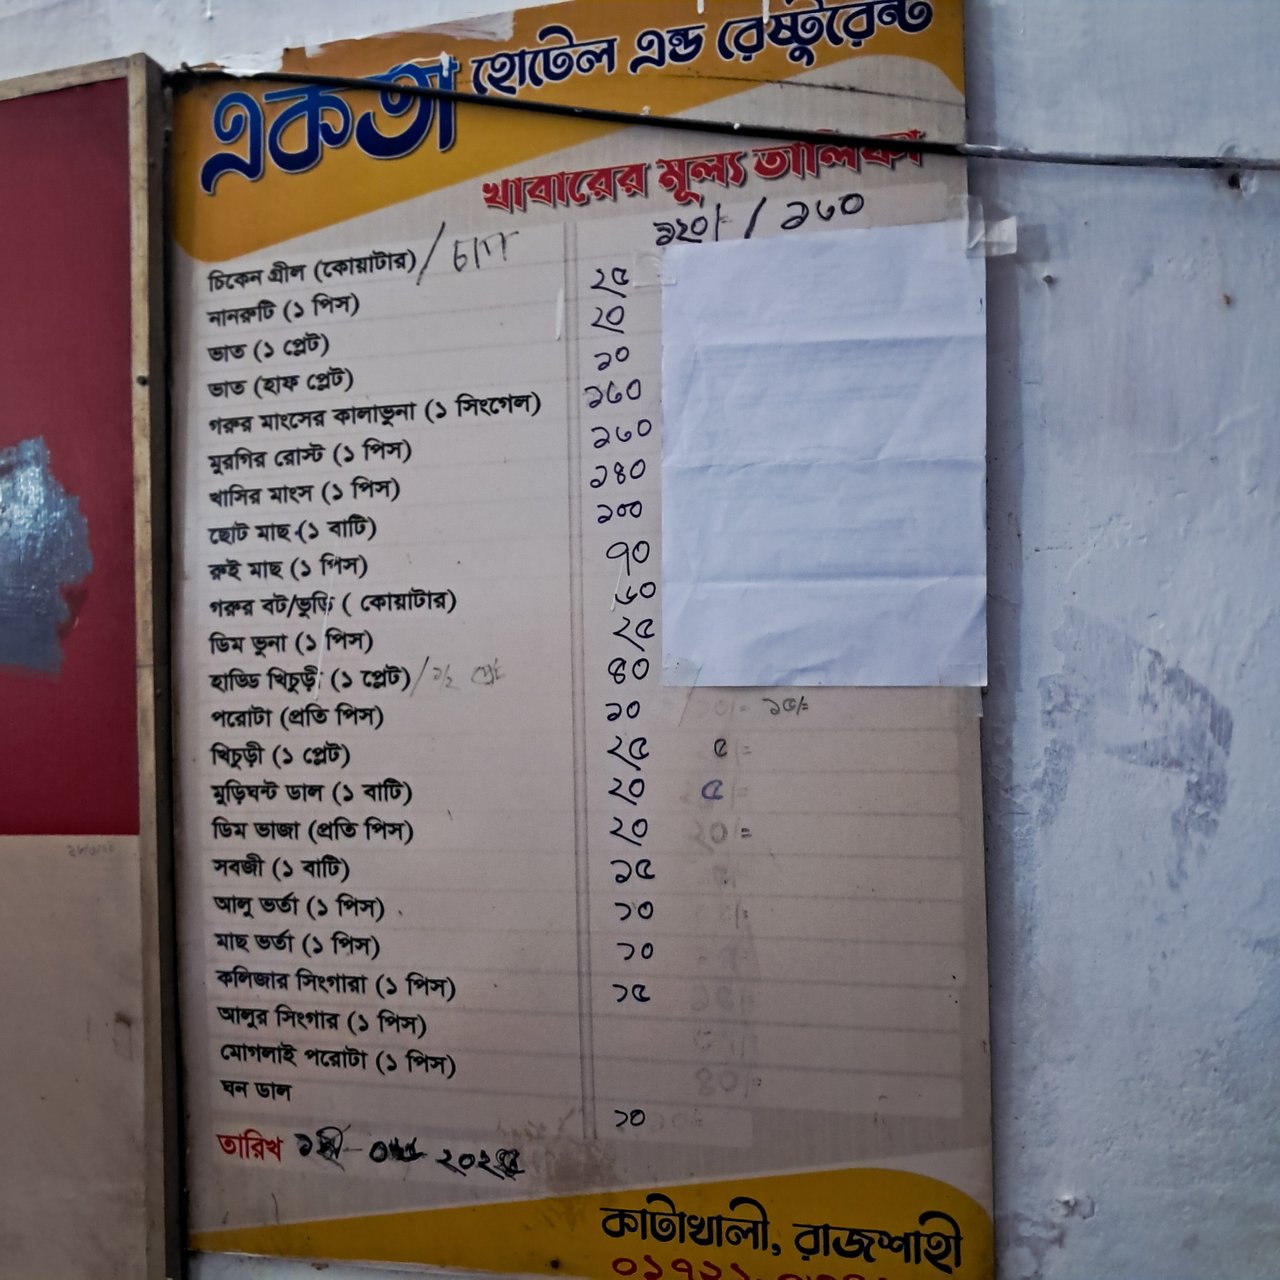 একতা হোটেল এন্ড রেষ্টুরেন্ট
খাবারের মূল্য তালিকা
চিকেন গ্রীল (কোয়াটার) / চাপ ১২০/- / ১৬০
নানরুটি (১ পিস) ২৫
ভাত (১ প্লেট) ২০
ভাত (হাফ প্লেট) ১০
গরুর মাংসের কালাভুনা (১ সিংগেল) ১৬০
মুরগির রোস্ট (১ পিস) ১৬০
খাসির মাংস (১ পিস) ১৪০
ছোট মাছ (১ বাটি) ১০০
রুই মাছ (১ পিস) ৭০
গরুর বট/ভুড়ি ( কোয়াটার) ৬০
ডিম ভুনা (১ পিস) ২৫
হাড্ডি খিচুড়ী (১ প্লেট) / ৪০
পরোটা (প্রতি পিস) ১০ ১৫/=
খিচুড়ী (১ প্লেট) ২৫ ৫ /=
মুড়িঘন্ট ডাল (১ বাটি) ২০ ৫
ডিম ভাজা (প্রতি পিস) ২০ ২০/=
সবজী (১ বাটি) ১৫
আলু ভর্তা (১ পিস) ১০
মাছ ভর্তা (১ পিস) ১০
কলিজার সিংগারা (১ পিস) ১৫
আলুর সিংগার (১ পিস)
মোগলাই পরোটা (১ পিস) ৪০/=
ঘন ডাল ১০
তারিখ
কাটাখালী, রাজশাহী